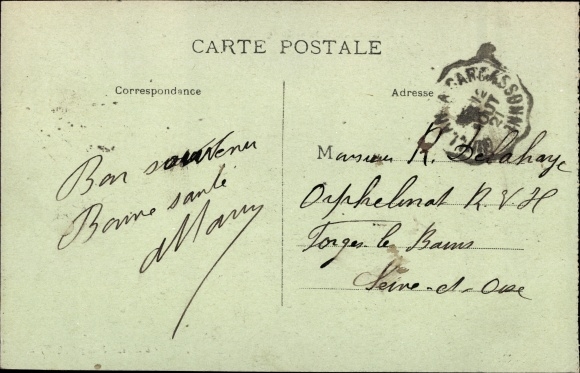 CARTE POSTALE
Correspondance
Adresse
A CARCASSONNE
AOUT
Bon souvenir
Bonne santé
Monsieur R. Delahaye
Orphelinat R. V. H
Forges les Bains
Seine-et-Oise